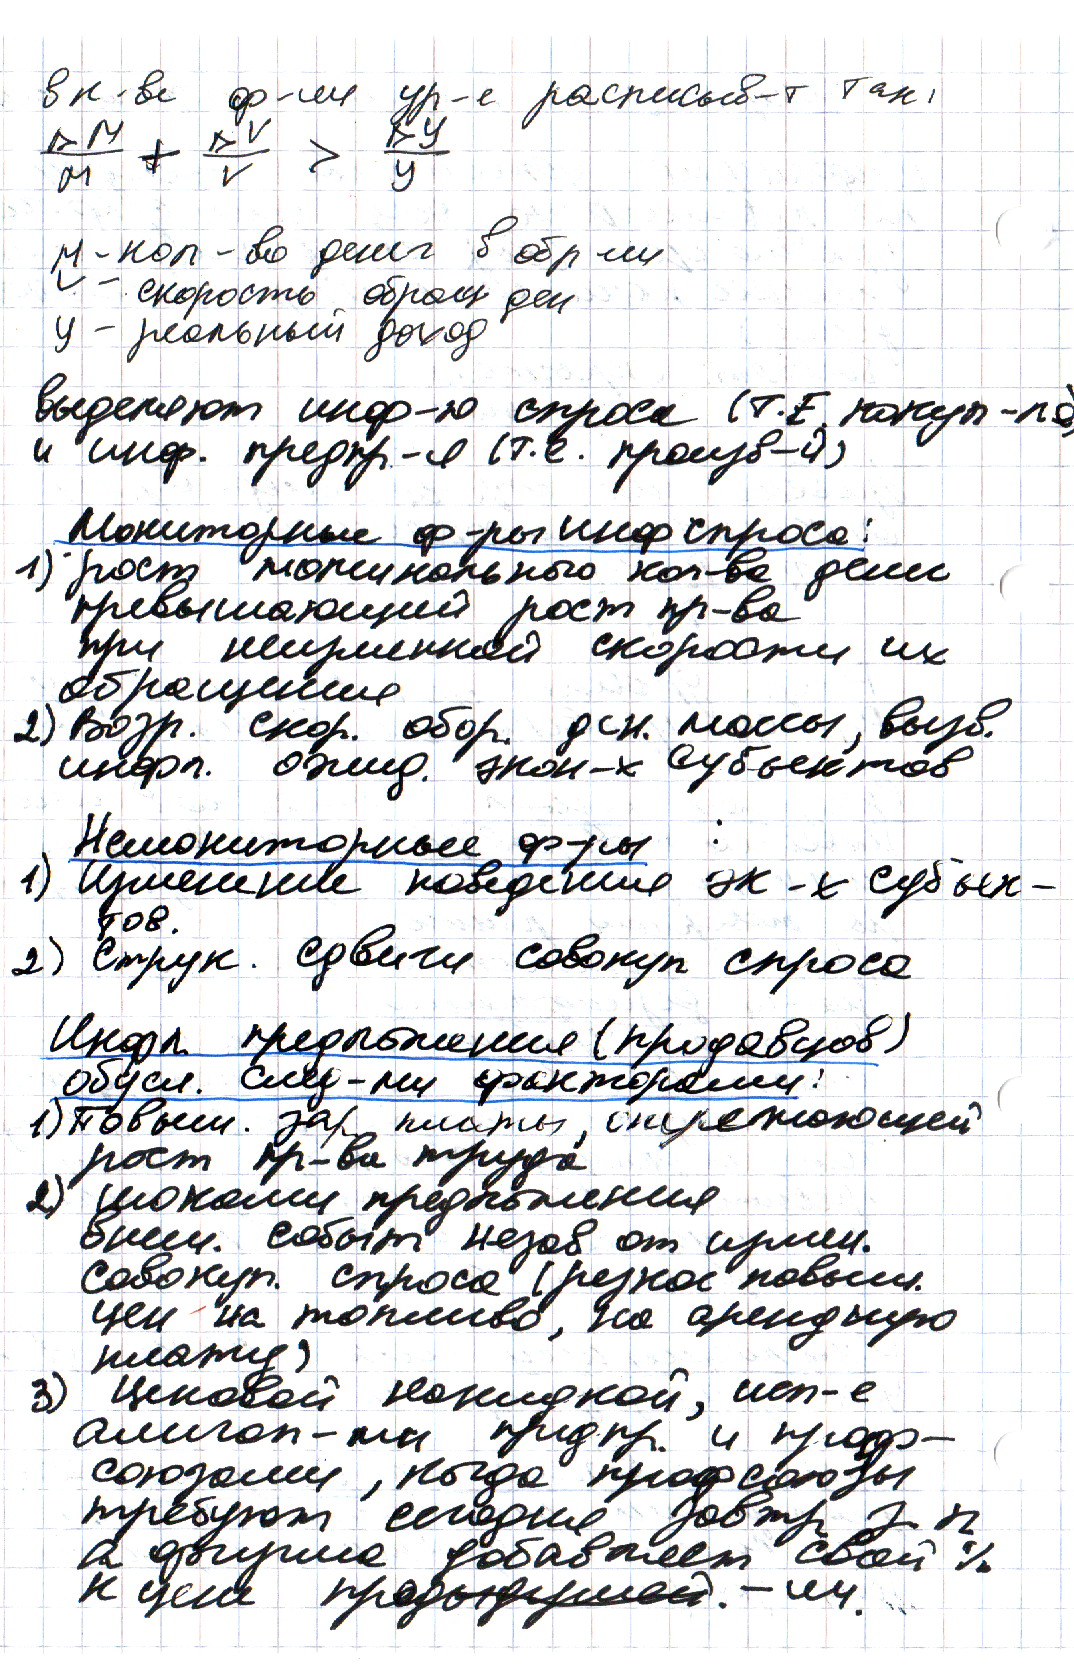 в к-ве ф-ии ур-е расписыв-т так:
ΔM/M + ΔV/V > ΔY/Y
M - кол-во денег в обр-ии
V - скорость обращ ден
Y - реальный доход
выделяют инф-ю спроса (Т.Е. покуп-ля)
и инф. предпр-я (т.е. произв-й)
Мониторные ф-ры инф спроса:
1) рост номинального кол-ва денег
превышающий рост пр-ва
при неизменной скорости их
обращения
2) Возр. скор. обор. ден. массы, вызв.
инфл. ожид. экон-х субъектов
Немониторные ф-ры :
1) Изменение поведения эк-х субъек-
тов.
2) Струк. сдвиги совокуп спроса
Инфл. предложения (продавцов)
обусл. след-ми факторами:
1) Повыш. зар платы, опережающей
рост пр-ва труда
2) шоками предложения
внеш. событ незав от измен.
совокуп. спроса (резкое повыш.
цен на топливо, на арендную
плату)
3) Ценовой накидкой, исп-е
алигоп-ми придпр. и проф-
союзами, когда профсоюзы
требуют сегодня завтр з. п
а фирма добавляет свой %
к цене -ии.